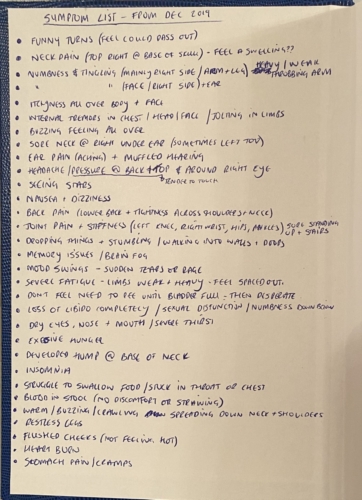 SYMPTOM LIST - FROM DEC 2019
• FUNNY TURNS (FEEL COULD PASS OUT)
• NECK PAIN (TOP RIGHT @ BASE OF SKULL) - FEEL A SWELLING??
• NUMBNESS & TINGLING (MAINLY RIGHT SIDE / ARM + LEG) HEAVY / WEAK
THROBBING ARM
• " " (FACE / RIGHT SIDE) + EAR
• ITCHYNESS ALL OVER BODY + FACE
• INTERNAL TREMORS IN CHEST / HEAD / FACE / JOLTING IN LIMBS
• BUZZING FEELING ALL OVER
• SORE NECK @ RIGHT UNDER EAR (SOMETIMES LEFT TOO)
• EAR PAIN (ACHING) + MUFFLED HEARING
• HEADACHE / PRESSURE @ BACK + TOP & AROUND RIGHT EYE
TENDER TO TOUCH
• SEEING STARS
• NAUSEA + DIZZINESS
• BACK PAIN (LOWER BACK + TIGHTNESS ACROSS SHOULDERS + NECK)
• JOINT PAIN + STIFFNESS (LEFT KNEE, RIGHT WRIST, HIPS, ANKLES) SORE STANDING
UP + STAIRS
• DROPPING THINGS + STUMBLING / WALKING INTO WALLS + DOORS
• MEMORY ISSUES / BRAIN FOG
• MOOD SWINGS - SUDDEN TEARS OR RAGE
• SEVERE FATIGUE - LIMBS WEAK + HEAVY - FEEL SPACED OUT
• DON'T FEEL NEED TO PEE UNTIL BLADDER FULL - THEN DESPERATE
• LOSS OF LIBIDO COMPLETELY / SEXUAL DISFUNCTION / NUMBNESS DOWN BELOW
• DRY EYES, NOSE + MOUTH / SEVERE THIRST
• EXCESSIVE HUNGER
• DEVELOPED HUMP @ BASE OF NECK
• INSOMNIA
• STRUGGLE TO SWALLOW FOOD / STUCK IN THROAT OR CHEST
• BLOOD IN STOOL (NO DISCOMFORT OR STRAINING)
• WARM / BUZZING / CRAWLING SPREADING DOWN NECK + SHOULDERS
• RESTLESS LEGS
• FLUSHED CHEEKS (NOT FEELING HOT)
• HEART BURN
• STOMACH PAIN / CRAMPS